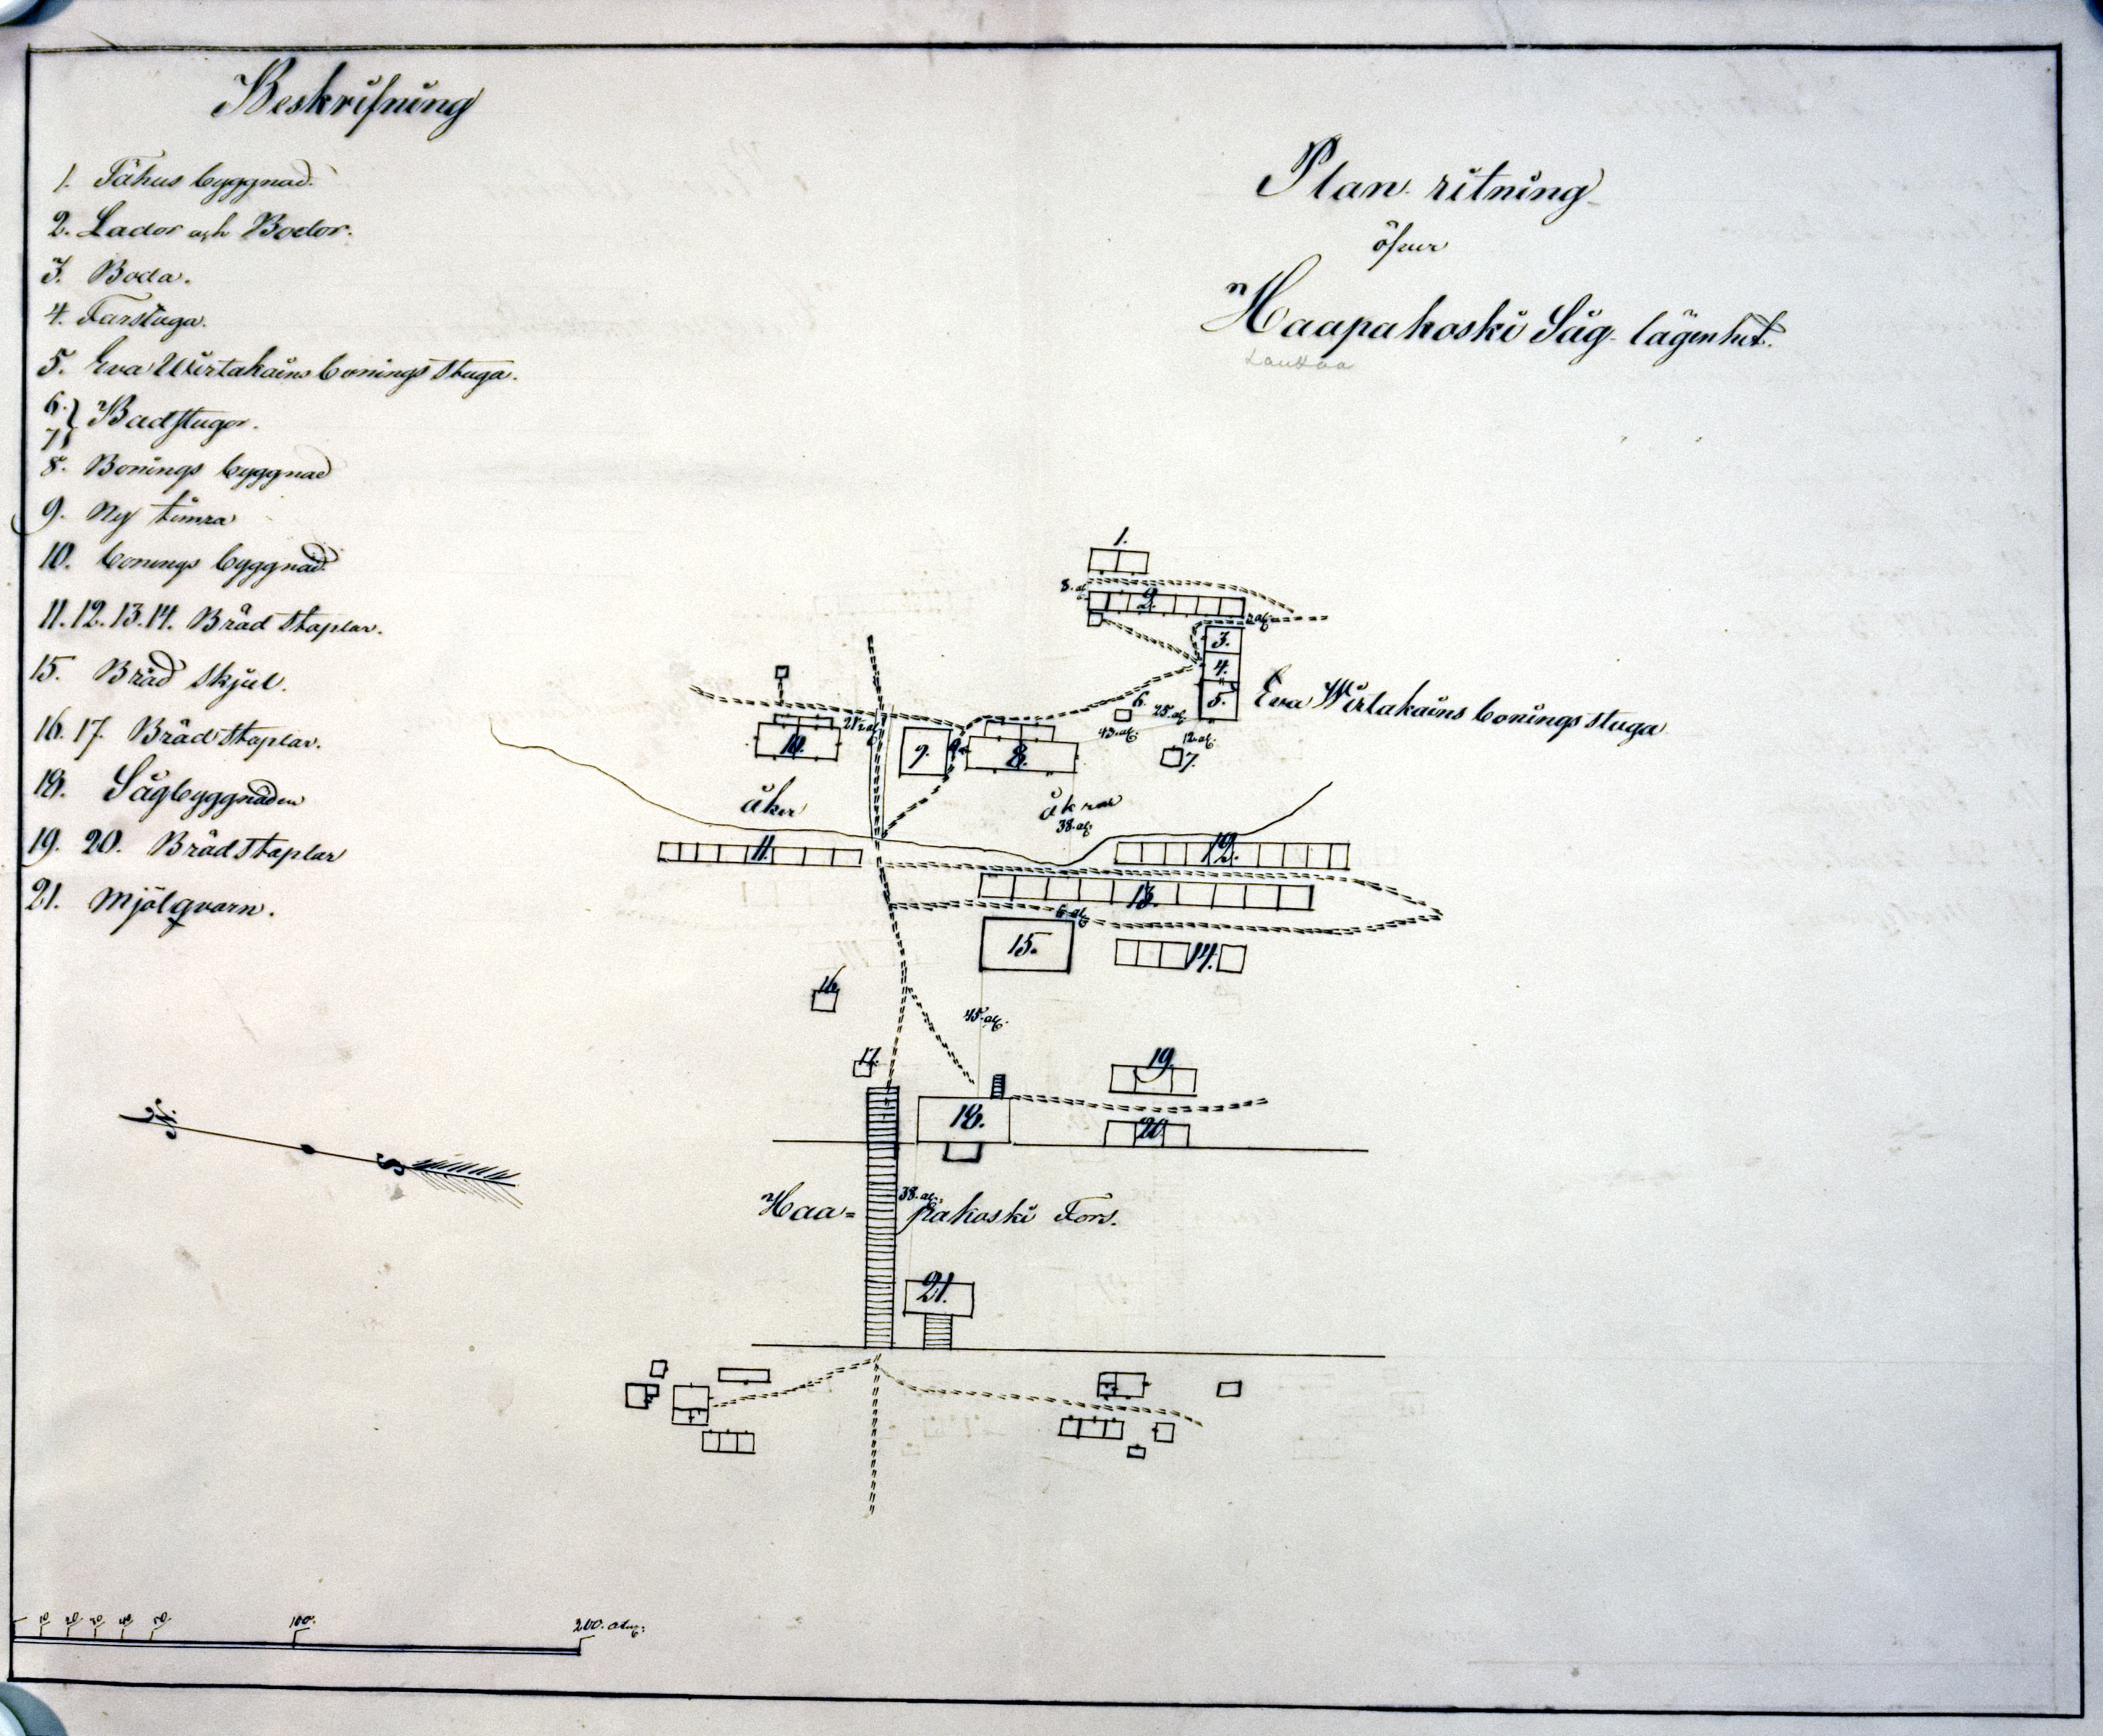 Beskrifning
1. Fähus byggnad.
2. Lador och Bodor.
3. Boda.
4. Farstuga.
5. Eva Wirtakains bonings stuga.
6. 7. } Badstugor.
8. Bonings byggnad
9. Ny timra
10. bonings byggnad.
11. 12. 13. 14. Bräd staplar.
15. Bräd skjul.
16. 17. Brädstaplar.
18. Sågbyggnaden
19. 20. Brädstaplar
21. Mjölqvarn.
Plan ritning
öfver
Haapakoski Såg lägenhet.
Laukaa
1.
8. al.
2.
3.
4.
5.
Eva Wirtakains bonings stuga
6.
25. al.
43. al.
12. al.
7.
10.
9.
8.
åker
åkrar
38. al.
11.
12.
13.
6 al.
15.
14.
16
45. al.
17.
19.
18.
20.
38. al.
Haa= pakoski Fors.
21.
S
10 20 30 40 50 100. 200. aln: